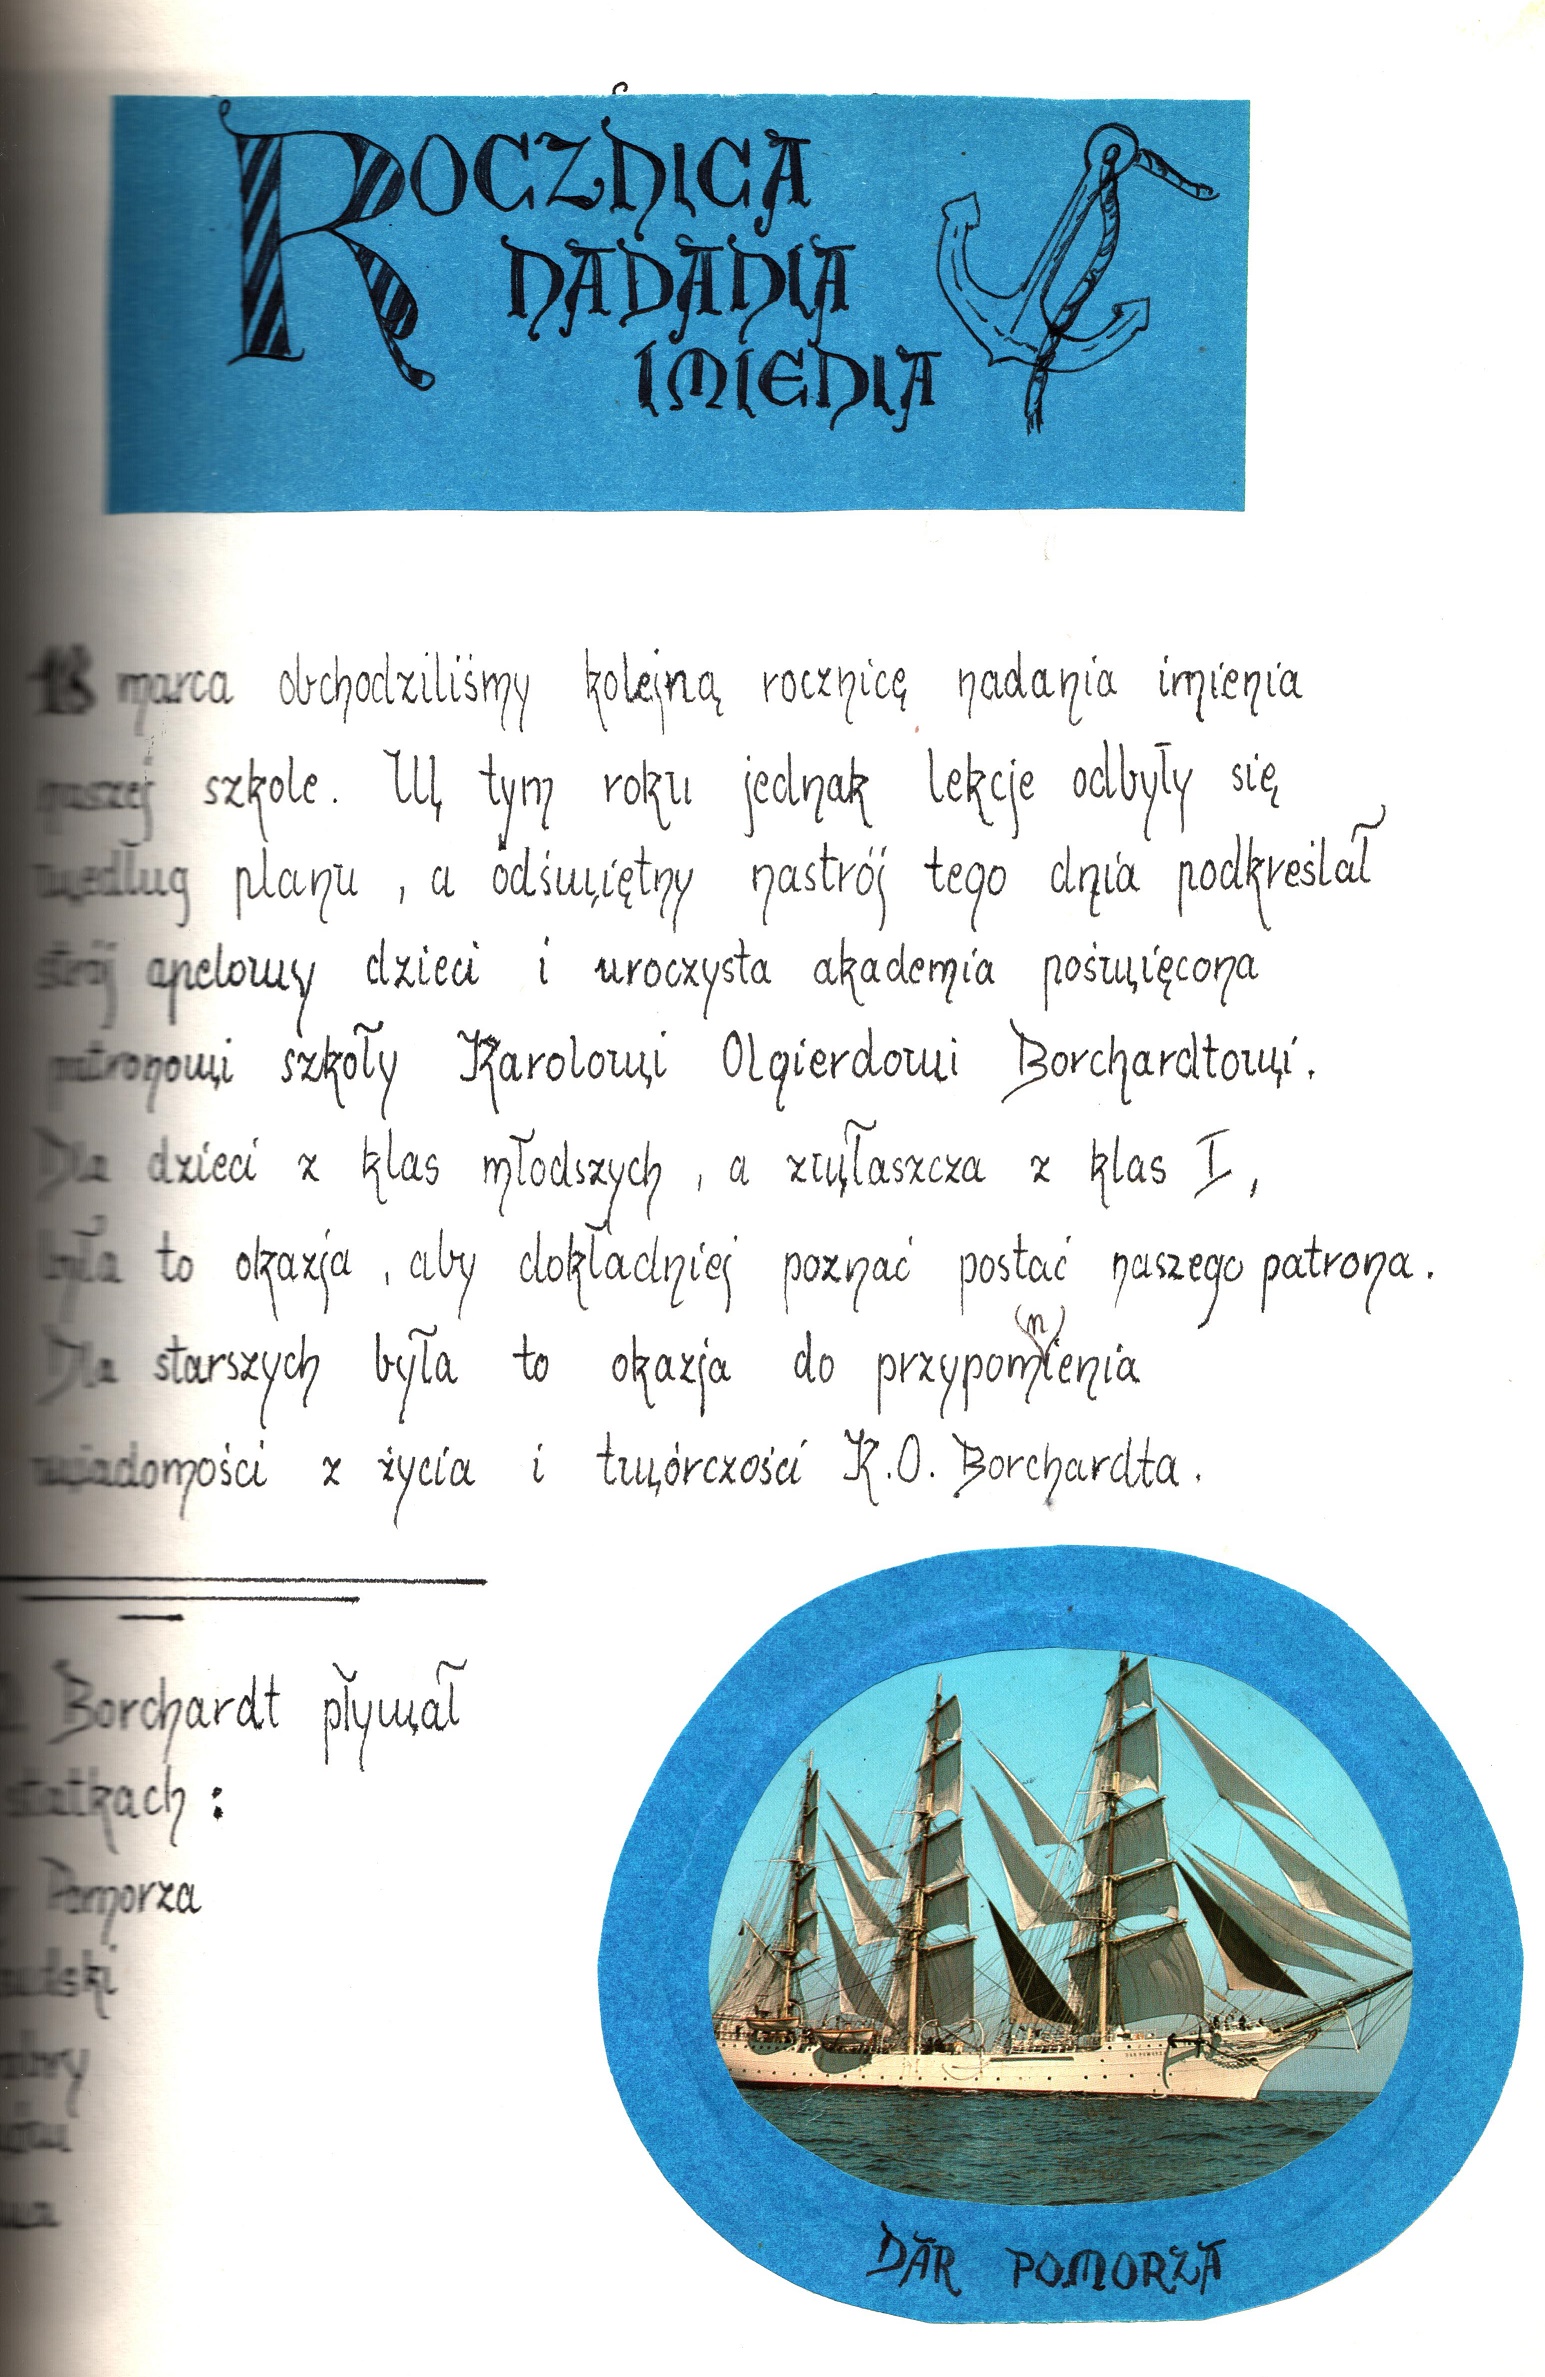 ROCZNICA
NADANIA
IMIENIA
marca obchodziliśmy kolejną rocznicę nadania imienia
naszej szkole. W tym roku jednak lekcje odbyły się
według planu, a odświętny nastrój tego dnia podkreślał
strój apelowy dzieci i uroczysta akademia poświęcona
patronowi szkoły Karolowi Olgierdowi Borchardtowi.
Dla dzieci z klas młodszych, a zwłaszcza z klas I,
była to okazja, aby dokładniej poznać postać naszego patrona.
Dla starszych była to okazja do przypom(n)ienia
wiadomości z życia i twórczości K.O. Borchardta.
Borchardt pływał
statkach:
Pomorza
DAR POMORZA